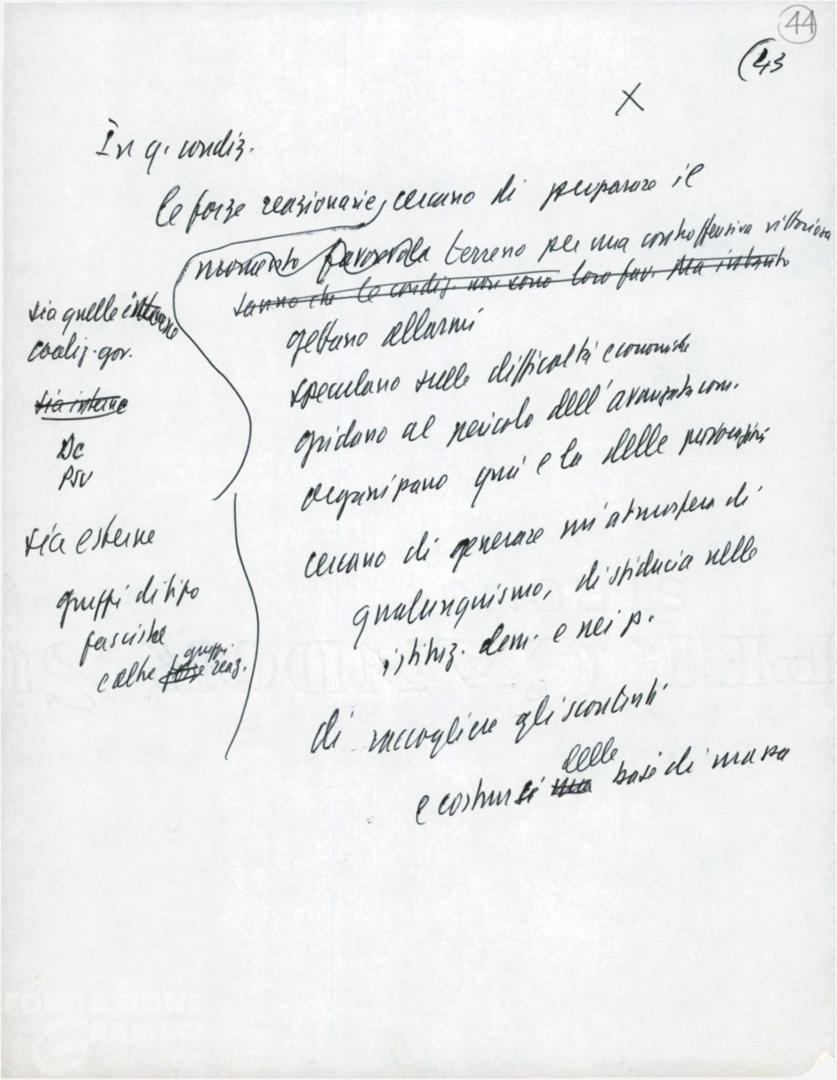 44
(43
X
In q. condiz.
le forze reazionarie, cercano di preparare il
momento favorevole terreno per una controffensiva vittoriosa
sanno che le condiz. non sono loro fav. Ma intanto
gettano allarmi
speculano sulle difficoltà economiche
gridano al pericolo dell'avanzata com.
organizzano qua e là delle provocazioni
cercano di generare un'atmosfera di
qualunquismo, di sfiducia nelle
istituz. dem. e nei p.
di raccogliere gli scontenti
delle
e costruirsi basi di massa
sia quelle interne
coaliz. gov.
sia interne
Dc
PSU
sia esterne
gruppi di tipo
fasciste
gruppi
e altre forze reaz.
FONDAZIONE
GRAMSCI